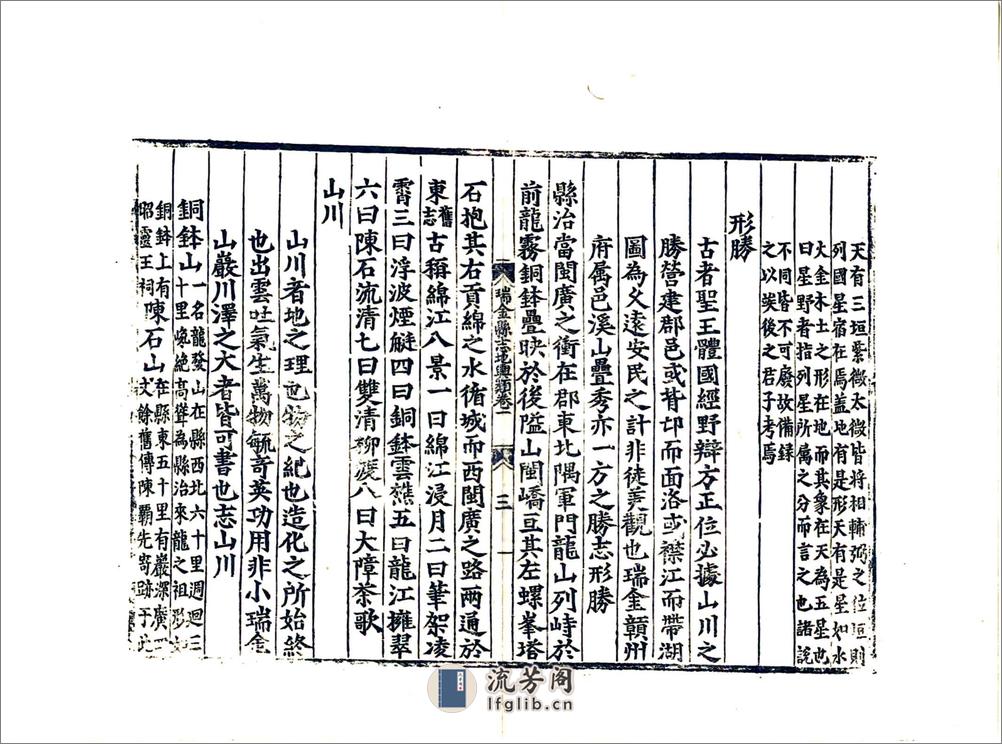 天有三垣紫微太微皆將相輔弼之位垣則
列國星宿在焉蓋地有是形天有是星如水
火金木土之形在地而其象在天為五星也
曰星野者指列星所属之分而言之也諸說
不同皆不可廢故備録
之以俟後之君子考焉
形勝
古者聖王體國經野辯方正位必據山川之
勝營建郡邑或背卭而面洛或襟江而帶湖
圖為久遠安民之計非徒美觀也瑞金贛州
府属邑溪山疊秀亦一方之勝志形勝
縣治當閩廣之衝在郡東北隅軍門龍山列峙於
前龍霧銅鉢疊映於後隘山閩嶠亘其左螺峯塔
瑞金縣志地輿類卷一
三
石抱其右貢綿之水循城而西閩廣之路兩通於
東舊志古稱綿江八景一曰綿江浸月二曰筆架凌
霄三曰浮波煙艇四曰銅鉢雲樵五曰龍江擁翠
六曰陳石流清七曰雙清柳渡八曰大障茶歌
山川
山川者地之理也物之紀也造化之所始終
也出雲吐氣生萬物毓奇英功用非小瑞金
山巖川澤之大者皆可書也志山川
銅鉢山一名龍發山在縣西北六十里週迴三
十里喚絶高聳為縣治來龍之祖形如
銅鉢上有
昭靈王祠陳石山在縣東五十里有巖深廣
丈餘舊傳陳覇先寄跡于此
流芳阁
lfglib.cn